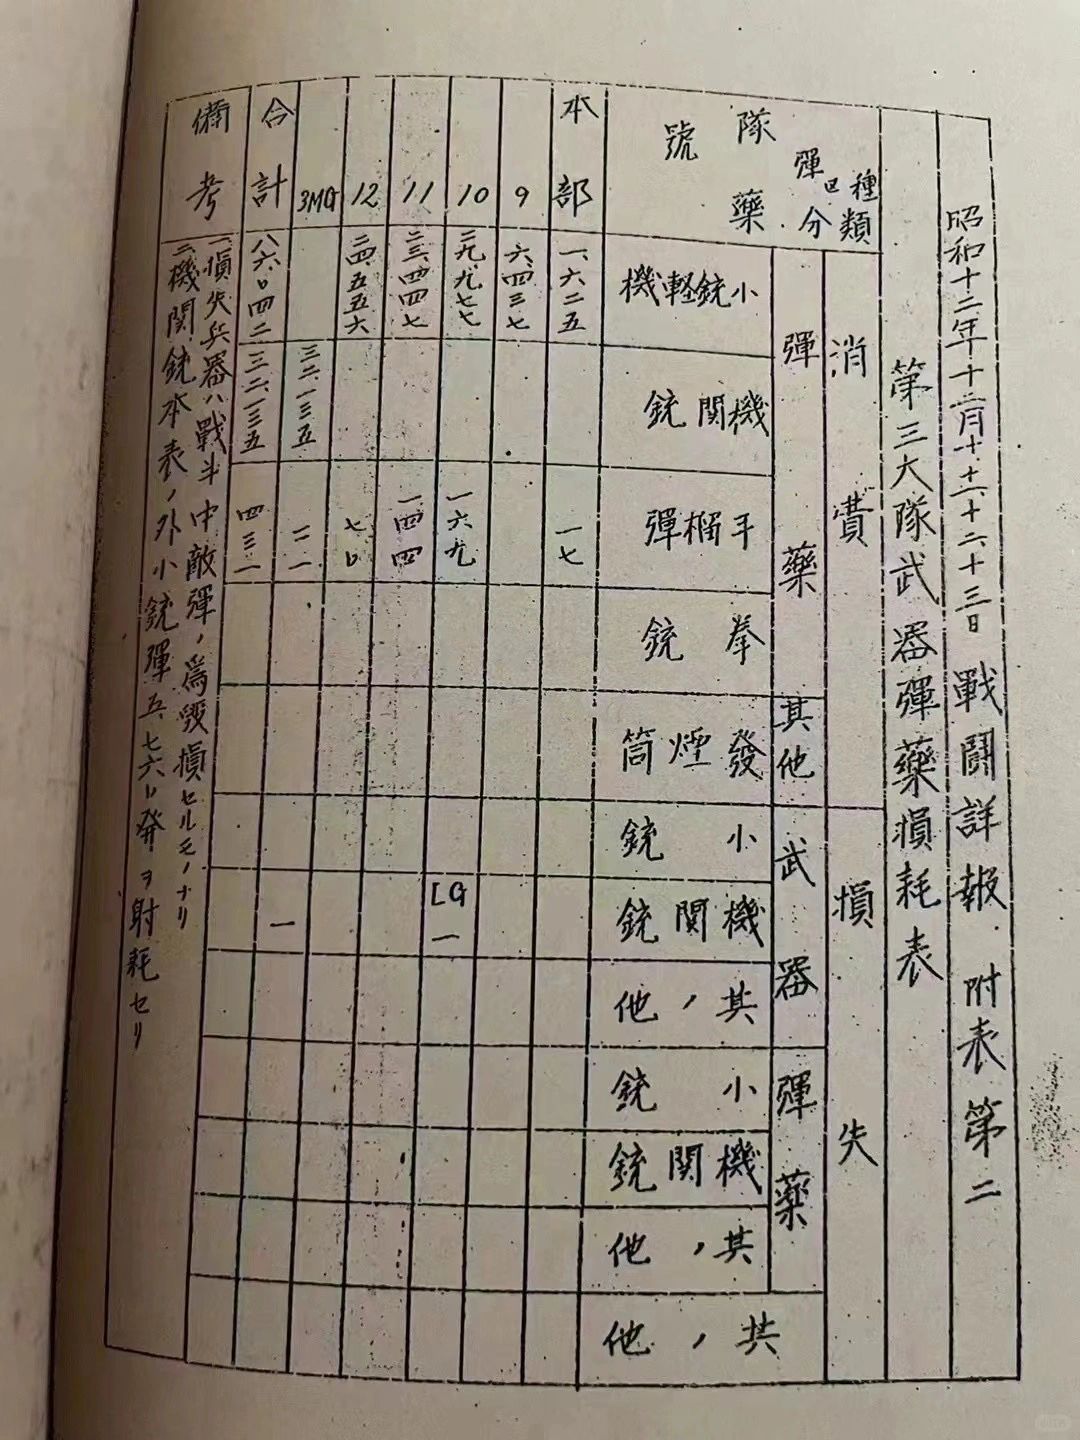 昭和十二年十二月十、十一、十二、十三日 戰鬪詳報 附表第二
第三大隊武器彈藥損耗表
種類
區分
彈藥
隊號
本部
9
10
11
12
3MG
合計
備考
消費
損失
彈藥
其他
武器
彈藥
小銃軽機
一、六二五
六、四三七
二九、九七七
二三、四四七
二四、五五六
八六、〇四二
機関銃
三二、一三五
三二、一三五
手榴彈
一七
一六九
一四四
七〇
四三一
拳銃
發煙筒
小銃
機関銃
LG
一
一
其ノ他
小銃
機関銃
其ノ他
其ノ他
一、損失兵器ハ戰斗中敵彈ノ爲毀損セルモノナリ
二、機関銃本表ノ外小銃彈五、七六〇発ヲ射耗セリ